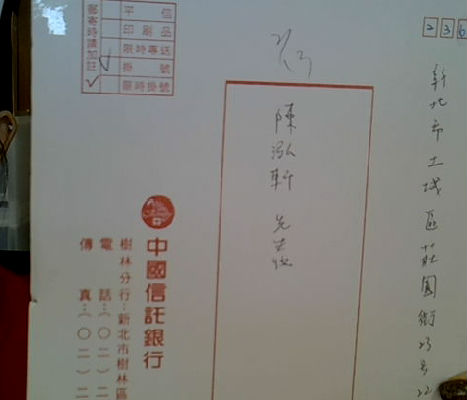 236
新北市土城區莊園街
陳泓軒 先生收
平信
印刷品
限時專送
掛號
限時掛號
郵寄時請加註✓
中國信託銀行
樹林分行：新北市樹林區
電話：（〇二）二
傳真：（〇二）二